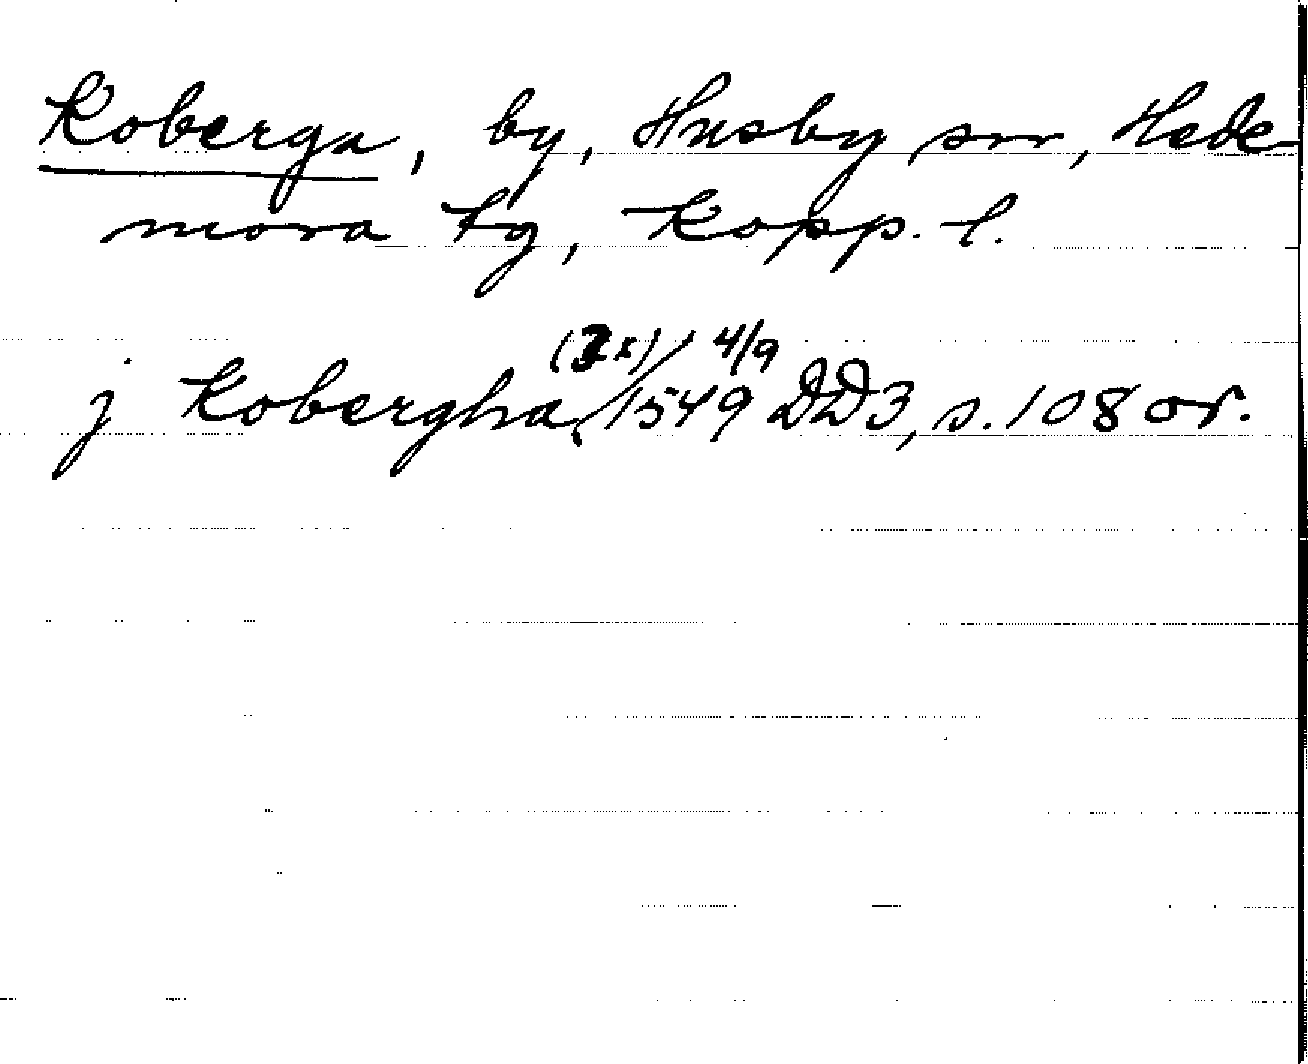 Koberga, by, Husby sn, Hede-
mora tg, Kopp. l.
j Kobergha (2x) 4/9 1549 DD3, s. 108 or.